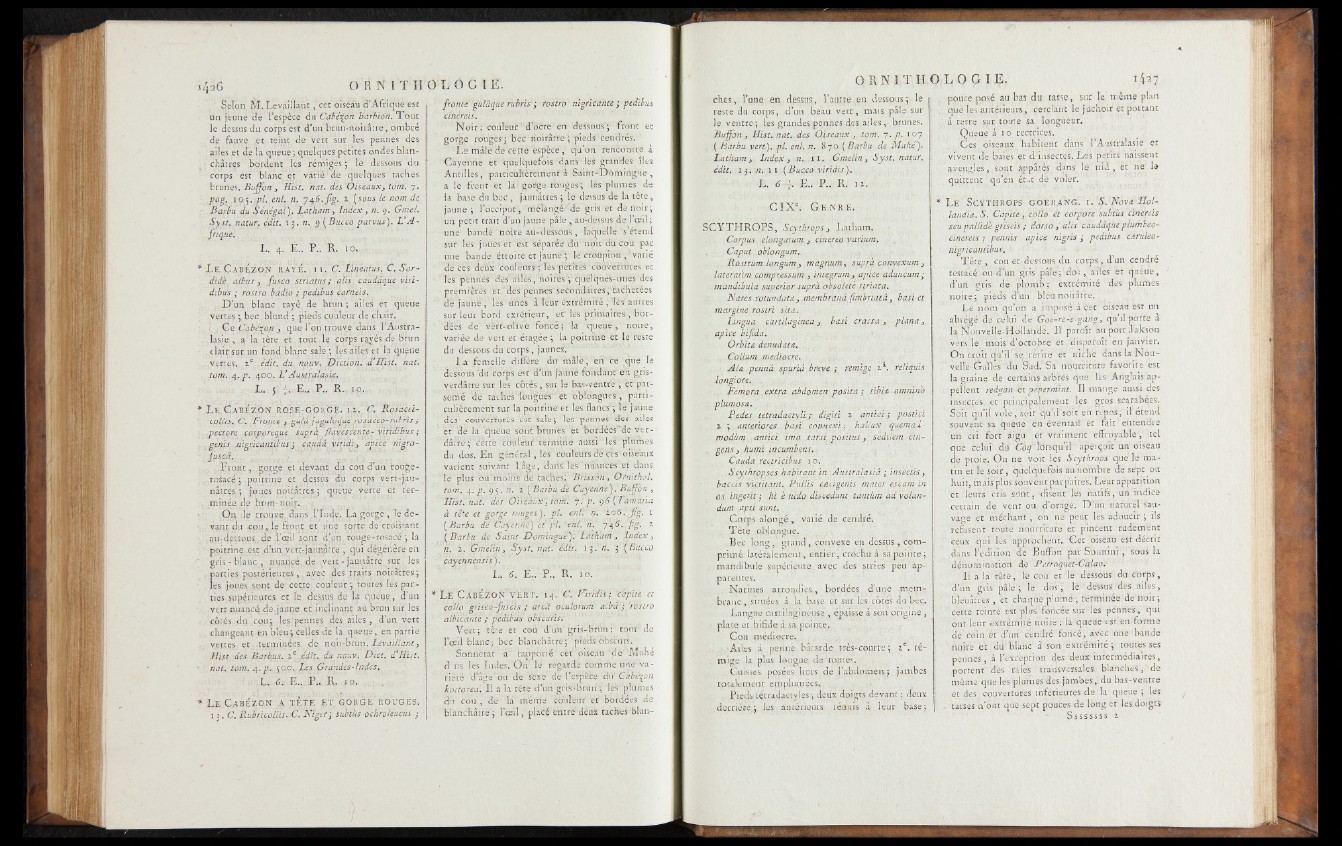 1426 ORNITHOLOGIE.
Selon M. Levaillant, cet oiseau d'Afrique est
un jeune de l'espèce du Cabézon barbion. Tout
le dessus du corps est d'un brun-noirâtre, ombré
de fauve et teint de vert sur les pennes des
ailes et de la queue; quelques petites ondes blan-
châtres bordent les rémiges; le dessous du
corps est blanc et varié de quelques taches
brunes. Buffon, Hist. nat. des Oiseaux, tom. 7.
pag. 105. pl. enl. n. 746. fig. 2 (sous le nom de
Barbu du Sénégal). Latham, Index, n. 9. Gmel.
Syst. natur. édit. 13. n. 9 (Bucco parvus). L'A-
frique.
L. 4. E.. P.. R. 10.
* LE CABÉZON RAYÉ. 11. C. Lineatus. C. Sor-
didè albus, fusco striatus; alis caudâque viri-
dibus; rostro badio; pedibus carneis.
D'un blanc rayé de brun; ailes et queue
vertes; bec blond; pieds couleur de chair.
Ce Cabézon, que l'on trouve dans l'Austra-
lasie, a la tête et tout le corps rayés de brun
clair sur un fond blanc sale; les ailes et la queue
vertes. 2e édit. du nouv. Diction. d'Hist. nat.
tom. 4. p. 400. L'Australasie.
L. 5 ½. E.. P.. R. 10.
* LE CABÉZON ROSE-GORGE. 12. C. Rosacei-
collis. C. Fronte, gulâ jugulòque rosaceo-rubris;
pectore corporeque suprà flavescente-viridibus;
genis nigricantibus; caudâ viridi, apice nigro-
fuscâ.
Front, gorge et devant du cou d'un rouge-
rosacé; poitrine et dessus du corps vert-jau-
nâtres; joues noirâtres; queue verte et ter-
minée de brun-noir.
On le trouve dans l'Inde. La gorge, le de-
vant du cou, le front et une sorte de croissant
au-dessous de l'œil sont d'un rouge-rosacé; la
poitrine est d'un vert-jaunâtre, qui dégénère en
gris-blanc, nuancé de vert-jaunâtre sur les
parties postérieures, avec des traits noirâtres;
les joues sont de cette couleur; toutes les par-
ties supérieures et le dessus de la queue, d'un
vert nuancé de jaune et inclinant au brun sur les
côtés du cou; les pennes des ailes, d'un vert
changeant en bleu; celles de la queue, en partie
vertes et terminées de noir-brun. Levaillant,
Hist des Barbus. 2e édit. du nouv. Dict. d'Hist.
nat. tom. 4. p. 500. Les Grandes-Indes.
L. 6. E.. P.. R. 10.
* LE CABÉZON A TÊTE ET GORGE ROUGES.
13. C. Rubricollis. C. Niger; subtùs ochroleucus;
fronte gulâque rubris; rostro nigricante; pedibus
cinereis.
Noir; couleur d'ocre en dessous; front et
gorge rouges; bec noirâtre; pieds cendrés.
Le mâle de cette espèce, qu'on rencontre à
Cayenne et quelquefois dans les grandes îles
Antilles, particulièrement à Saint-Domingue,
a le front et la gorge rouges; les plumes de
la base du bec, jaunâtres; le dessus de la tête,
jaune; l'occiput, mélangé de gris et de noir;
un petit trait d'un jaune pâle, au-dessus de l'œil;
une bande noire au-dessous, laquelle s'étend
sur les joues et est séparée du noir du cou par
une bande étroite et jaune; le croupion, varié
de ces deux couleurs; les petites couvertures et
les pennes des ailes, noires; quelques-unes des
premières et des pennes secondaires, tachetées
de jaune, les unes à leur extrémité, les autres
sur leur bord extérieur, et les primaires, bor-
dées de vert-olive foncé; la queue, noire,
variée de vert et étagée; la poitrine et le reste
du dessous du corps, jaunes.
La femelle diffère du mâle, en ce que le
dessous du corps est d'un jaune fondant en gris-
verdâtre sur les côtés, sur le bas-ventre, et par-
semé de taches longues et oblongues, parti-
culièrement sur la poitrine et les flancs; le jaune
des couvertures est sale; les pennes des ailes
et de la queue sont brunes et bordées de ver-
dâtre; cette couleur termine aussi les plumes
du dos. En général, les couleurs de ces oiseaux
varient suivant l'âge, dans les nuances et dans
le plus ou moins de taches. Brisson, Ornithol.
tom. 4. p. 95. n. 2 (Barbu de Cayenne). Buffon,
Hist. nat. des Oiseaux, tom. 7. p. 96 (Tamatia
à tête et gorge rouges). pl. enl. n. 206. fig. 1
(Barbu de Cayenne) et pl. enl. n. 746. fig. 2
(Barbu de Saint Domingue). Latham, Index,
n. 2. Gmelin, Syst. nat. édit. 13. n. 3 (Bucco
cayennensis).
L. 6. E.. P.. R. 10.
* LE CABÉZON VERT. 14. C. Viridis; capite et
collo griseo-fuscis; areâ oculorum albâ; rostro
albicante; pedibus obscuris.
Vert; tête et cou d'un gris-brun; tour de
l'œil blanc; bec blanchâtre; pieds obscurs.
Sonnerat a rapporté cet oiseau de Mahé
dans les Indes. On le regarde comme une va-
riété d'âge ou de sexe de l'espèce du Cabézon
kottorea. Il a la tête d'un gris-brun; les plumes
du cou, de la même couleur et bordées de
blanchâtre; l'œil, placé entre deux taches blan-
ORNITHOLOGIE. 1427
ches, l'une en dessus, l'autre en dessous; le
reste du corps, d'un beau vert, mais pâle sur
le ventre; les grandes pennes des ailes, brunes.
Buffon, Hist. nat. des Oiseaux, tom. 7. p. 107
(Barbu vert). pl. enl. n. 870 (Barbu de Mahé).
Latham, Index, n. 11. Gmelin, Syst. natur.
édit. 13. n. 11 (Bucco viridis).
L. 6 ½. E.. P.. R. 12.
CIXe. GENRE.
SCYTHROPS, Scythrops, Latham.
Corpus elongatum, cinereo varium.
Caput oblongum.
Rostrum longum, magnum, suprà convexum,
lateratim compressum, integrum, apice aduncum;
mandibula superior suprà obsoletè striata.
Nares rotundatæ, membranâ fimbriatâ, basi et
margine rostri sitæ.
Lingua cartilaginea, basi crassa, plana,
apice bifida.
Orbitæ denudatæ.
Collum mediocre.
Ala pennâ spuriâ breve; remige 2â. reliquis
longiore.
Femora extra abdomen posita; tibiæ omninò
plumosæ.
Pedes tetradactyli; digiti 2 antici; postici
2; anteriores basi connexi; hallux quemad-
modùm antici imo tarsi positus, sedulem cin-
gens, humi incumbens.
Cauda rectricibus 10.
Scythropses habitant in Australasiâ; insectis,
baccis victitant. Pullis cæcigenis mater escam in
os ingerit; hi è nido discedunt tantùm ad volan-
dum apti sunt.
Corps alongé, varié de cendré.
Tête oblongue.
Bec long, grand, convexe en dessus, com-
primé latéralement, entier, crochu à sa pointe;
mandibule supérieure avec des stries peu ap-
parentes.
Narines arrondies, bordées d'une mem-
brane, situées à la base et sur les côtés du bec.
Langue cartilagineuse, épaisse à son origine,
plate et bifide à sa pointe.
Cou médiocre.
Ailes à penne bâtarde très-courte; 2e. ré-
mige la plus longue de toutes.
Cuisses posées hors de l'abdomen; jambes
totalement emplumées.
Pieds tétradactyles; deux doigts devant; deux
derrière; les antérieurs réunis à leur base;
pouce posé au bas du tarse, sur le même plan
que les antérieurs, cerclant le juchoir et portant
à terre sur toute sa longueur.
Queue à 10 rectrices.
Ces oiseaux habitent dans l'Australasie et
vivent de baies et d'insectes. Les petits naissent
aveugles, sont appâtés dans le nid, et ne le
quittent qu'en état de voler.
* LE SCYTHROPS GOERANG. 1. S. Novæ Hol-
landiæ. S. Capite, collo et corpore subtùs cinereis
seu pallidè griseis; dorso, alis caudâque plumbeo-
cinereis; pennis apice nigris; pedibus cæruleo-
nigricantibus.
Tête, cou et dessous du corps, d'un cendré
testacé ou d'un gris pâle; dos, ailes et queue,
d'un gris de plomb; extrémité des plumes
noire; pieds d'un bleu noirâtre.
Le nom qu'on a imposé à cet oiseau est un
abrégé de celui de Goe-re-e-gang, qu'il porte à
la Nouvelle-Hollande. Il paroît au port Jakson
vers le mois d'octobre et disparoît en janvier.
On croit qu'il se retire et niche dans la Nou-
velle Galles du Sud. Sa nourriture favorite est
la graine de certains arbres que les Anglais ap-
pellent redgum et pepermint. Il mange aussi des
insectes et principalement les gros scarabées.
Soit qu'il vole, soit qu'il soit en repos, il étend
souvent sa queue en éventail et fait entendre
un cri fort aigu et vraiment effroyable, tel
que celui du Coq lorsqu'il aperçoit un oiseau
de proie. On ne voit les Scythrops que le ma-
tin et le soir, quelquefois au nombre de sept ou
huit, mais plus souvent par paires. Leur apparition
et leurs cris sont, disent les natifs, un indice
certain de vent ou d'orage. D'un naturel sau-
vage et méchant, on ne peut les adoucir; ils
refusent toute nourriture et pincent rudement
ceux qui les approchent. Cet oiseau est décrit
dans l'édition de Buffon par Sonnini, sous la
dénomination de Perroquet-Calao.
Il a la tête, le cou et le dessous du corps,
d'un gris pâle; le dos, le dessus des ailes,
bleuâtres, et chaque plume, terminée de noir;
cette teinte est plus foncée sur les pennes, qui
ont leur extrémité noire; la queue est en forme
de coin et d'un cendré foncé, avec une bande
noire et du blanc à son extrémité; toutes ses
pennes, à l'exception des deux intermédiaires,
portent des raies transversales blanches, de
même que les plumes des jambes, du bas-ventre
et des couvertures inférieures de la queue; les
tarses n'ont que sept pouces de long et les doigts
Sssssss 2